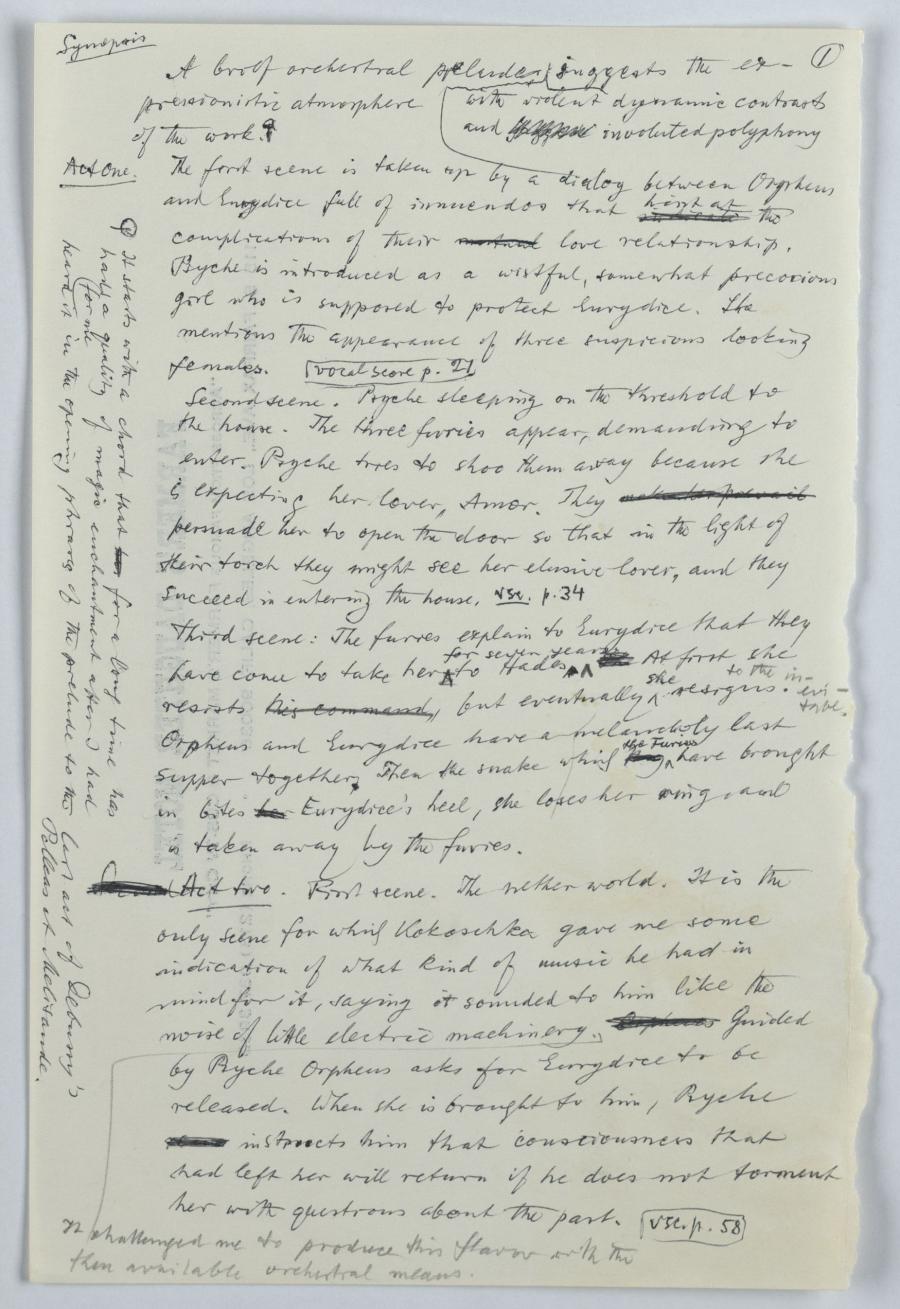 Synopsis
①
A brief orchestral prelude suggests the ex-
pressionistic atmosphere
of the work.
with violent dynamic contrasts
and involuted polyphony
Act One.
The first scene is taken up by a dialog between Orpheus
and Eurydice full of innuendos that hint at the
complications of their mutual love relationship.
Psyche is introduced as a wistful, somewhat precocious
girl who is supposed to protect Eurydice. She
mentions the appearance of three suspicious looking
females. vocal score p. 21
Second scene. Psyche sleeping on the threshold to
the house. The three furies appear, demanding to
enter. Psyche tries to shoo them away because she
is expecting her lover, Amor. They make her prevail
persuade her to open the door so that in the light of
their torch they might see her elusive lover, and they
succeed in entering the house. vsc. p. 34
Third scene: The furies explain to Eurydice that they
for seven years
have come to take her to Hades. At first she
resists his command, but eventually she resigns to the in-
evi-
table.
Orpheus and Eurydice have a melancholy last
supper together. Then the snake which they the Furies have brought
in bites her Eurydice's heel, she loses her ring, and
is taken away by the furies.
Act two. First scene. The nether world. It is the
only scene for which Kokoschka gave me some
indication of what kind of music he had in
mind for it, saying it sounded to him like the
noise of little electric machinery. Orpheus Guided
by Psyche Orpheus asks for Eurydice to be
released. When she is brought to him, Psyche
instructs him that consciousness that
had left her will return if he does not torment
her with questions about the past. vsc. p. 58
It challenged me to produce this flavor with the
then available orchestral means.
It starts with a chord that for a long time has
had a quality of magic enchantment after I had
for me
heard it in the opening phrases of the prelude to the last act of Debussy's
Pelleas et Melisande.